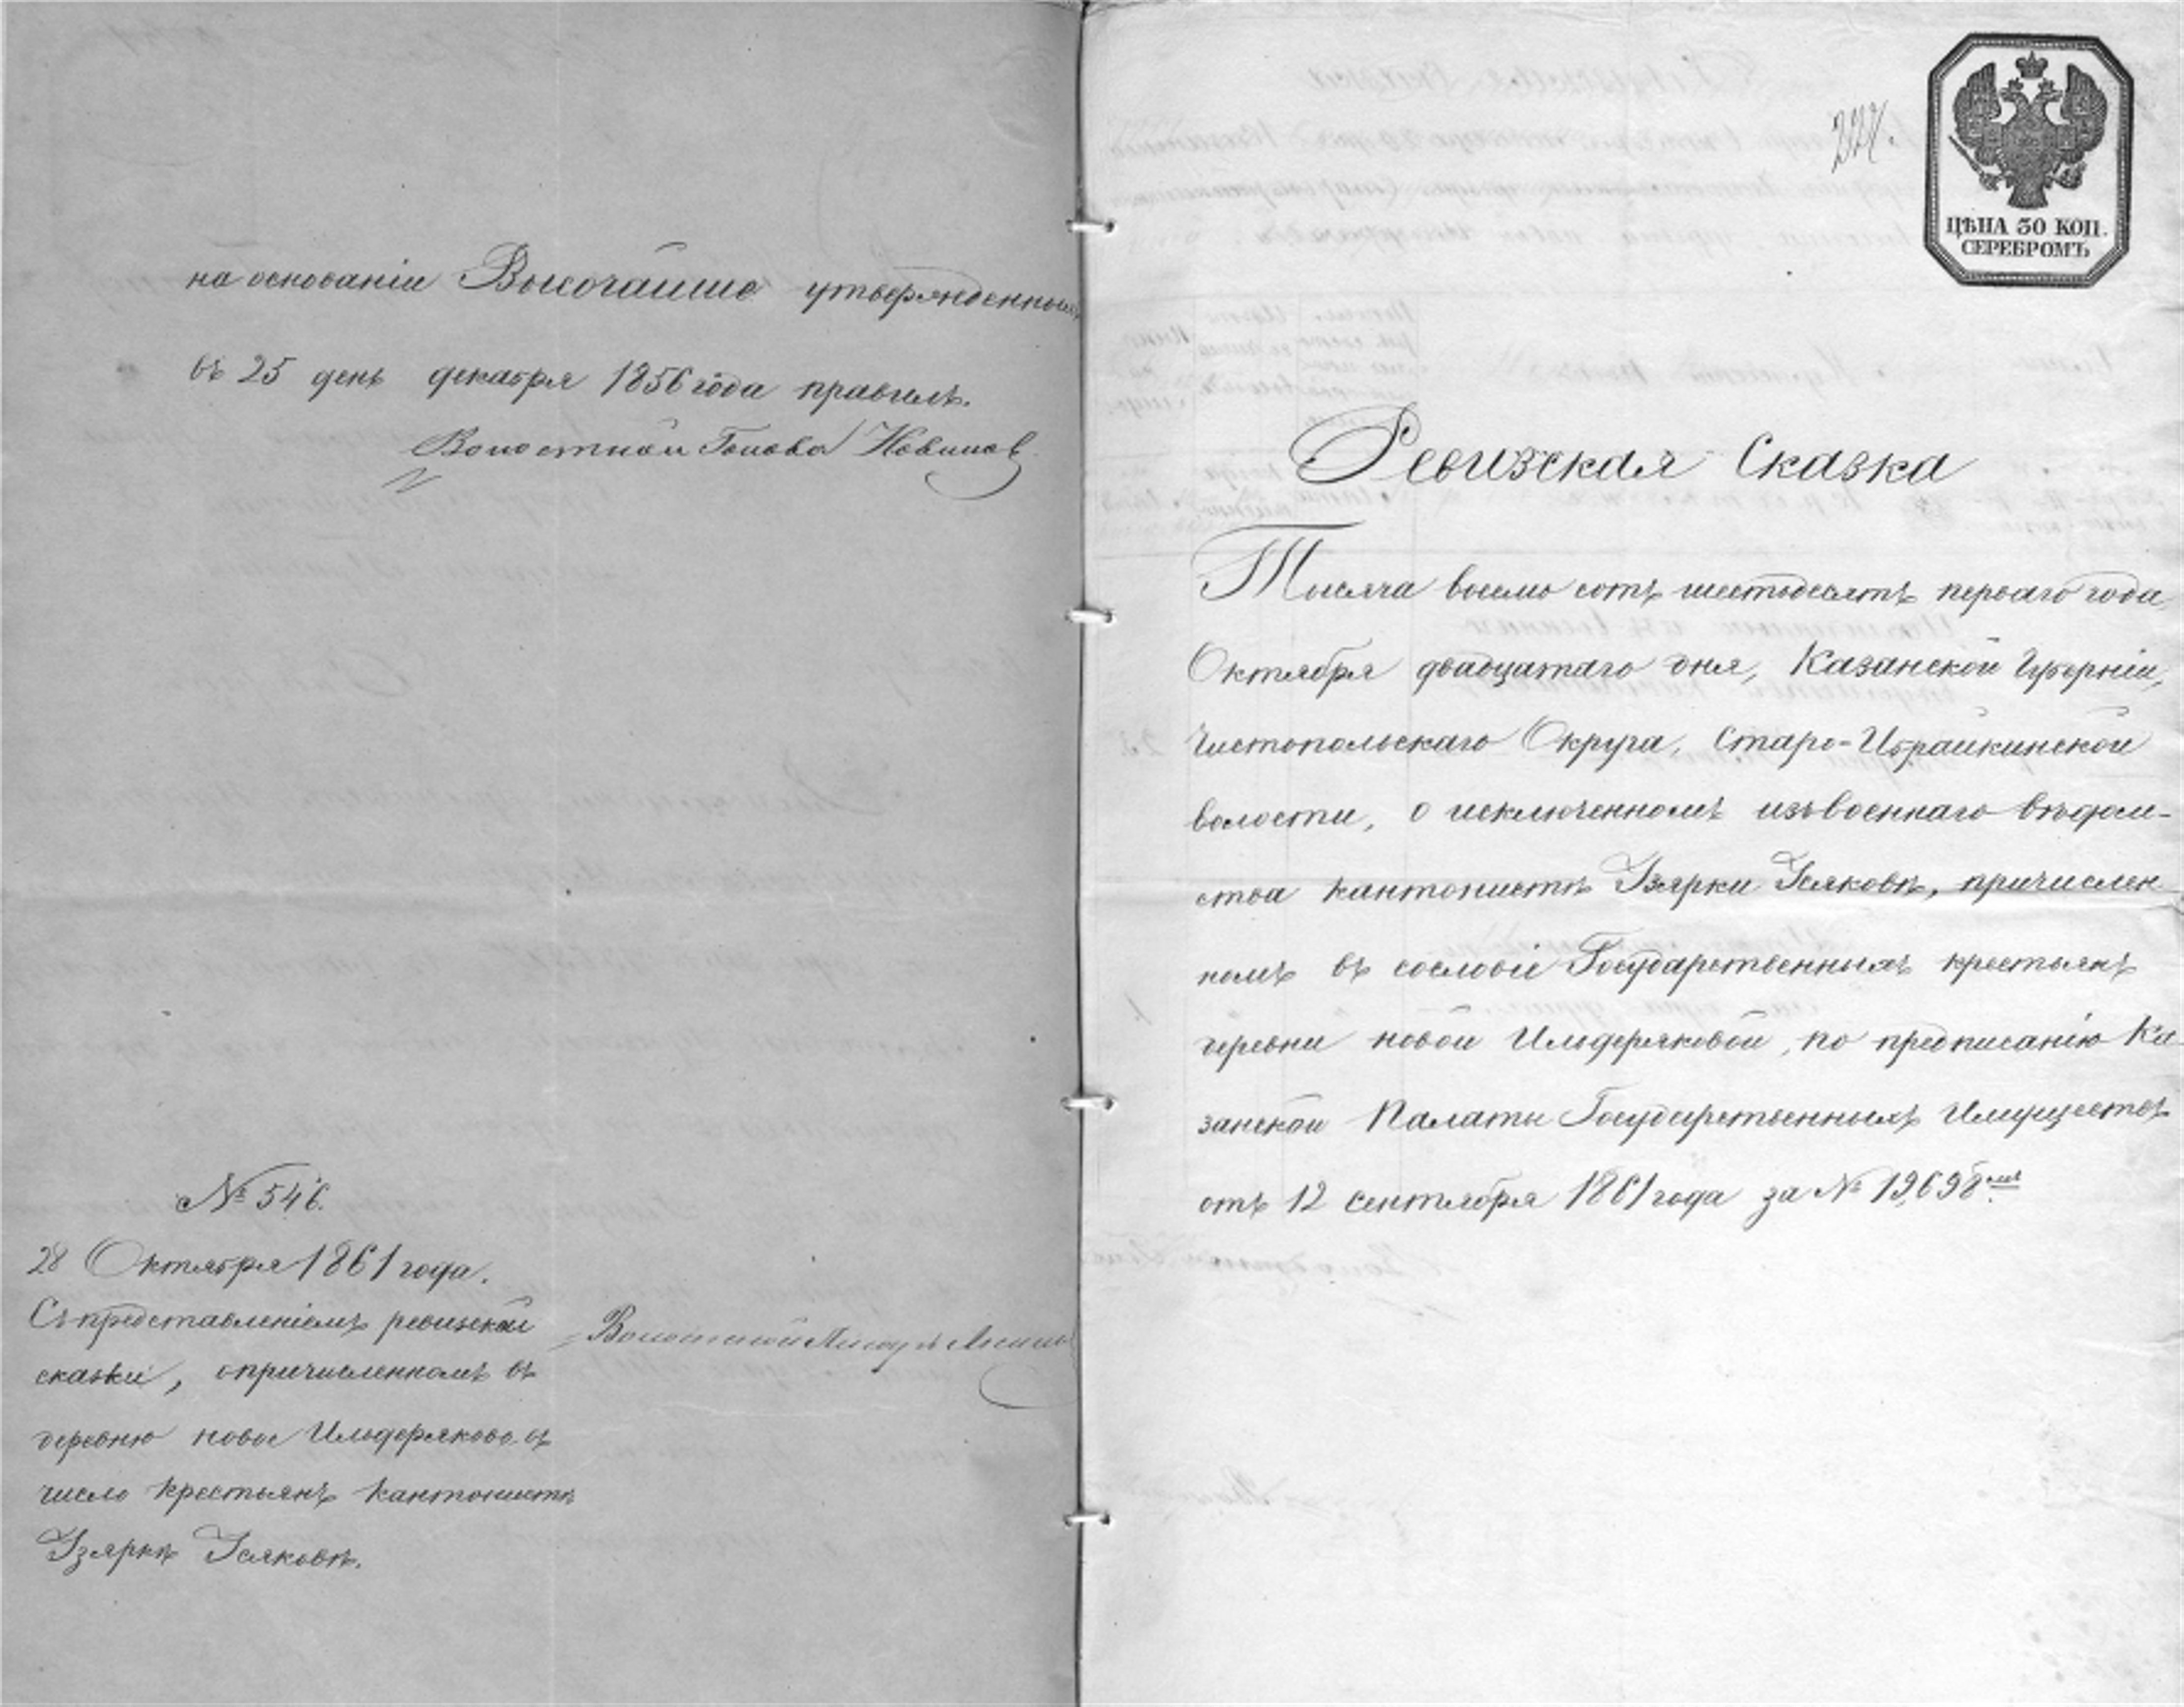 на основаніи Высочайше утвержденныхъ
въ 25 день декабря 1856 года правилъ.
Волостной Голова Новиков
№ 546.
28 Октября 1861 года.
Съ представленіемъ ревизской
сказки, о причисленномъ въ
деревню новое Ильдеряково въ
число крестьянъ кантонистѣ
Узяркѣ Усяковѣ.
Волостной
224.
ЦѢНА 30 КОП.
СЕРЕБРОМЪ
Ревизская Сказка
Тысяча восемь сотъ шестьдесятъ перваго года
Октября двадцатаго дня, Казанской Губерніи,
Чистопольскаго Округа, Старо-Ибрайкинской
волости, о исключенномъ изъ военнаго вѣдом-
ства кантонистѣ Узярки Усяковѣ, причислен-
номъ въ сословіе Государственныхъ крестьянъ
деревни новой Ильдеряковой, по предписанію Ка-
занской Палаты Государственныхъ Имуществъ
отъ 12 сентября 1861 года за № 19698мъ